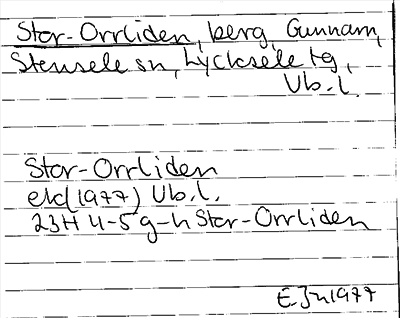 Stor-Orrliden, berg, Gunnarn,
Stensele sn, Lycksele tg,
Vb.l.
Stor-Orrliden
ek(1977) Vb.l.
23H 4-5 g-h Stor-Orrliden
EJn 1977